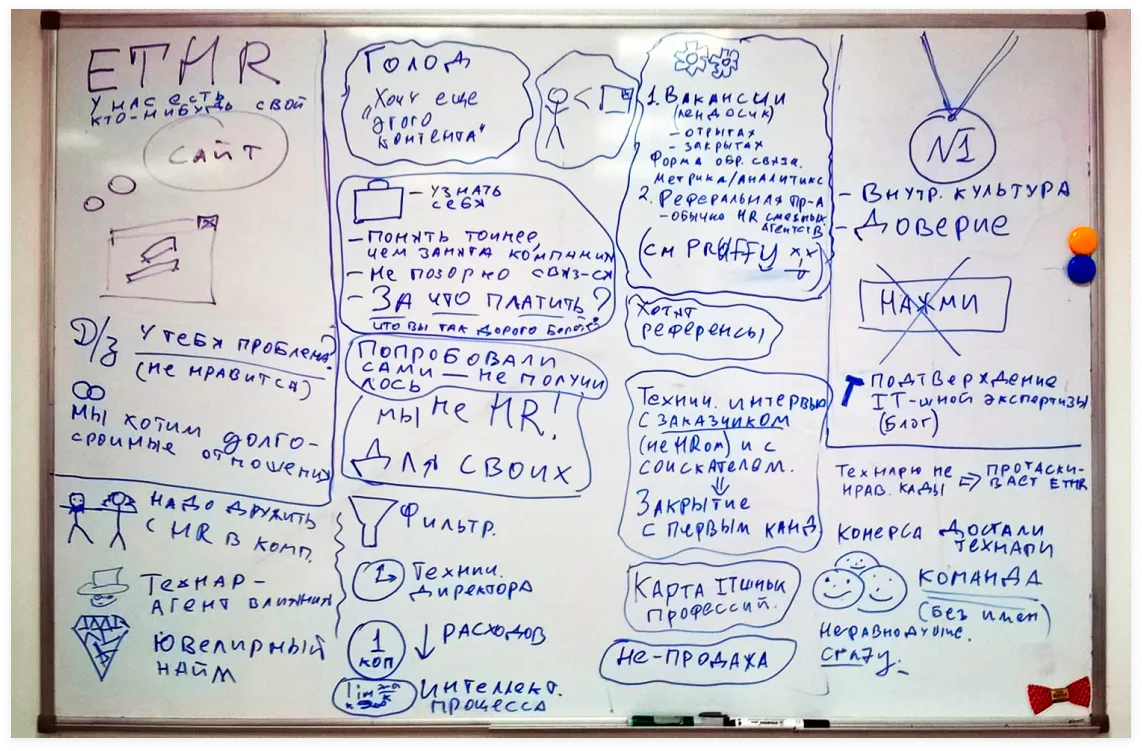 ETHR
У НАС ЕСТЬ
КТО-НИБУДЬ СВОЙ
САЙТ
Д/З У ТЕБЯ ПРОБЛЕМА?
(НЕ НРАВИТСЯ)
МЫ ХОТИМ ДОЛГО-
СРОЧНЫЕ ОТНОШЕНИЯ
НАДО ДРУЖИТЬ
С HR В КОМП.
ТЕХНАР-
АГЕНТ ВЛИЯНИЯ
ЮВЕЛИРНЫЙ
НАЙМ
ГОЛОД
ХОЧУ ЕЩЕ
"ЭТОГО
КОНТЕНТА"
- УЗНАТЬ
СЕБЯ
- ПОНЯТЬ ТОЧНЕЕ,
ЧЕМ ЗАНЯТА КОМПАНИЯ
- НЕ ПОЗОРНО СВЯЗ-СЯ
- ЗА ЧТО ПЛАТИТЬ?
ЧТО ВЫ ТАК ДОРОГО БЕРЕТЕ?
ПОПРОБОВАЛИ
САМИ — НЕ ПОЛУЧИ
ЛОСЬ
МЫ НЕ HR!
ДЛЯ СВОИХ
ФИЛЬТР.
ТЕХНИЧ.
ДИРЕКТОРА
1
КОП
↓ РАСХОДОВ
lim
ИНТЕЛЛЕКТ.
ПРОЦЕССА
1. ВАКАНСИИ
(ЛЕНДОСИК)
- ОТРЫТАХ
- ЗАКРЫТАХ
ФОРМА ОБР. СВЯЗИ.
МЕТРИКА/АНАЛИТИКС
2. РЕФЕРАЛЬНАЯ ПР-А
- ОБЫЧНО HR СМЕЖНЫХ
АГЕНТСТВ
(СМ PRUFFY
ХОТЯТ
РЕФЕРЕНСЫ
ТЕХНИЧ. ИНТЕРВЬЮ
С ЗАКАЗЧИКОМ
(НЕ HRОМ) И С
СОИСКАТЕЛЕМ.
⇓
ЗАКРЫТИЕ
С ПЕРВЫМ КАНД
КАРТА ITШНЫХ
ПРОФЕССИЙ.
НЕ-ПРОДАЖА
N1
- ВНУТР. КУЛЬТУРА
- ДОВЕРИЕ
НАЖМИ
ПОДТВЕРЖДЕНИЕ
IT-ШНОЙ ЭКСПЕРТИЗЫ
(БЛОГ)
ТЕХНАРЮ НЕ ⇒ ПРОТАСКИ-
НРАВ. КАДЫ ВАЕТ ETHR
КОНЕРСА ДОСТАЛИ
ТЕХНАРИ
КОМАНДА
(БЕЗ ИМЕН)
НЕРАВНОДУШИЕ.
CRAZY.